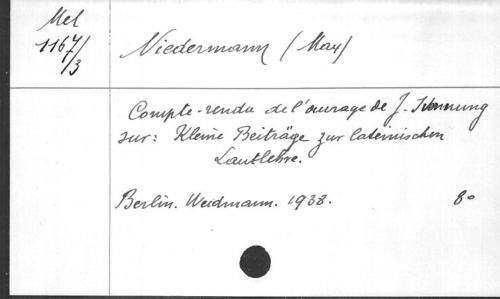 Mel
1167/
/3
Niedermann (Max)
Compte-rendu de l'ouvrage de J. Svennung
sur: Kleine Beiträge zur lateinischen
Lautlehre.
Berlin. Weidmann. 1938. 8o